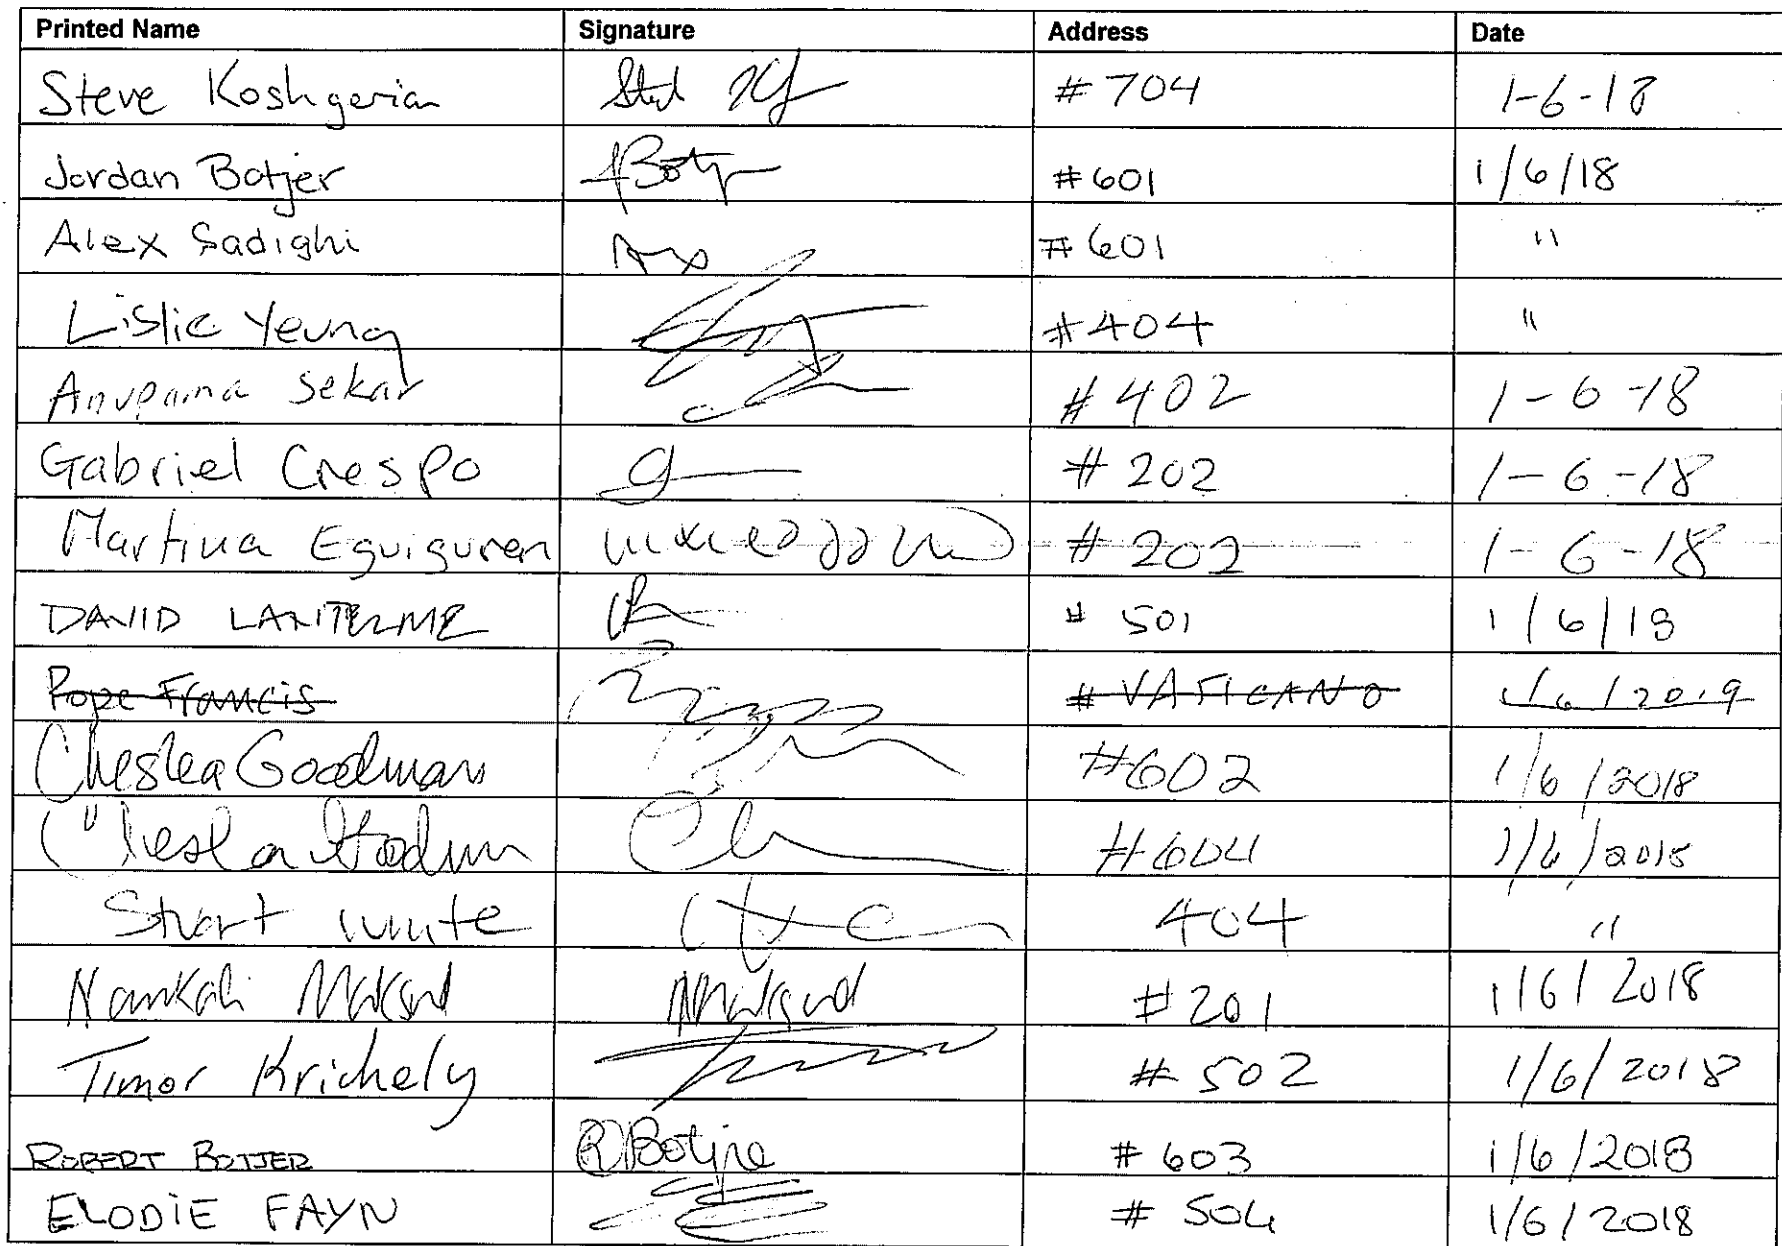 Printed Name Signature Address Date
Steve Koshgerian #704 1-6-18
Jordan Botjer JBotjer #601 1/6/18
Alex Sadighi #601 "
Leslie Yeung #404 "
Anupama Sekar #402 1-6-18
Gabriel Crespo #202 1-6-18
Martina Eguiguren #202 1-6-18
DAVID #501 1/6/18
Pope Francis #VATICANO 1/6/2019
Cheslea Goodman #602 1/6/2018
#604
Stuart White 404 "
#201 1/6/2018
Timor Krichely #502 1/6/2018
ROBERT BOTJER RBotjer #603 1/6/2018
ELODIE FAYN #504 1/6/2018